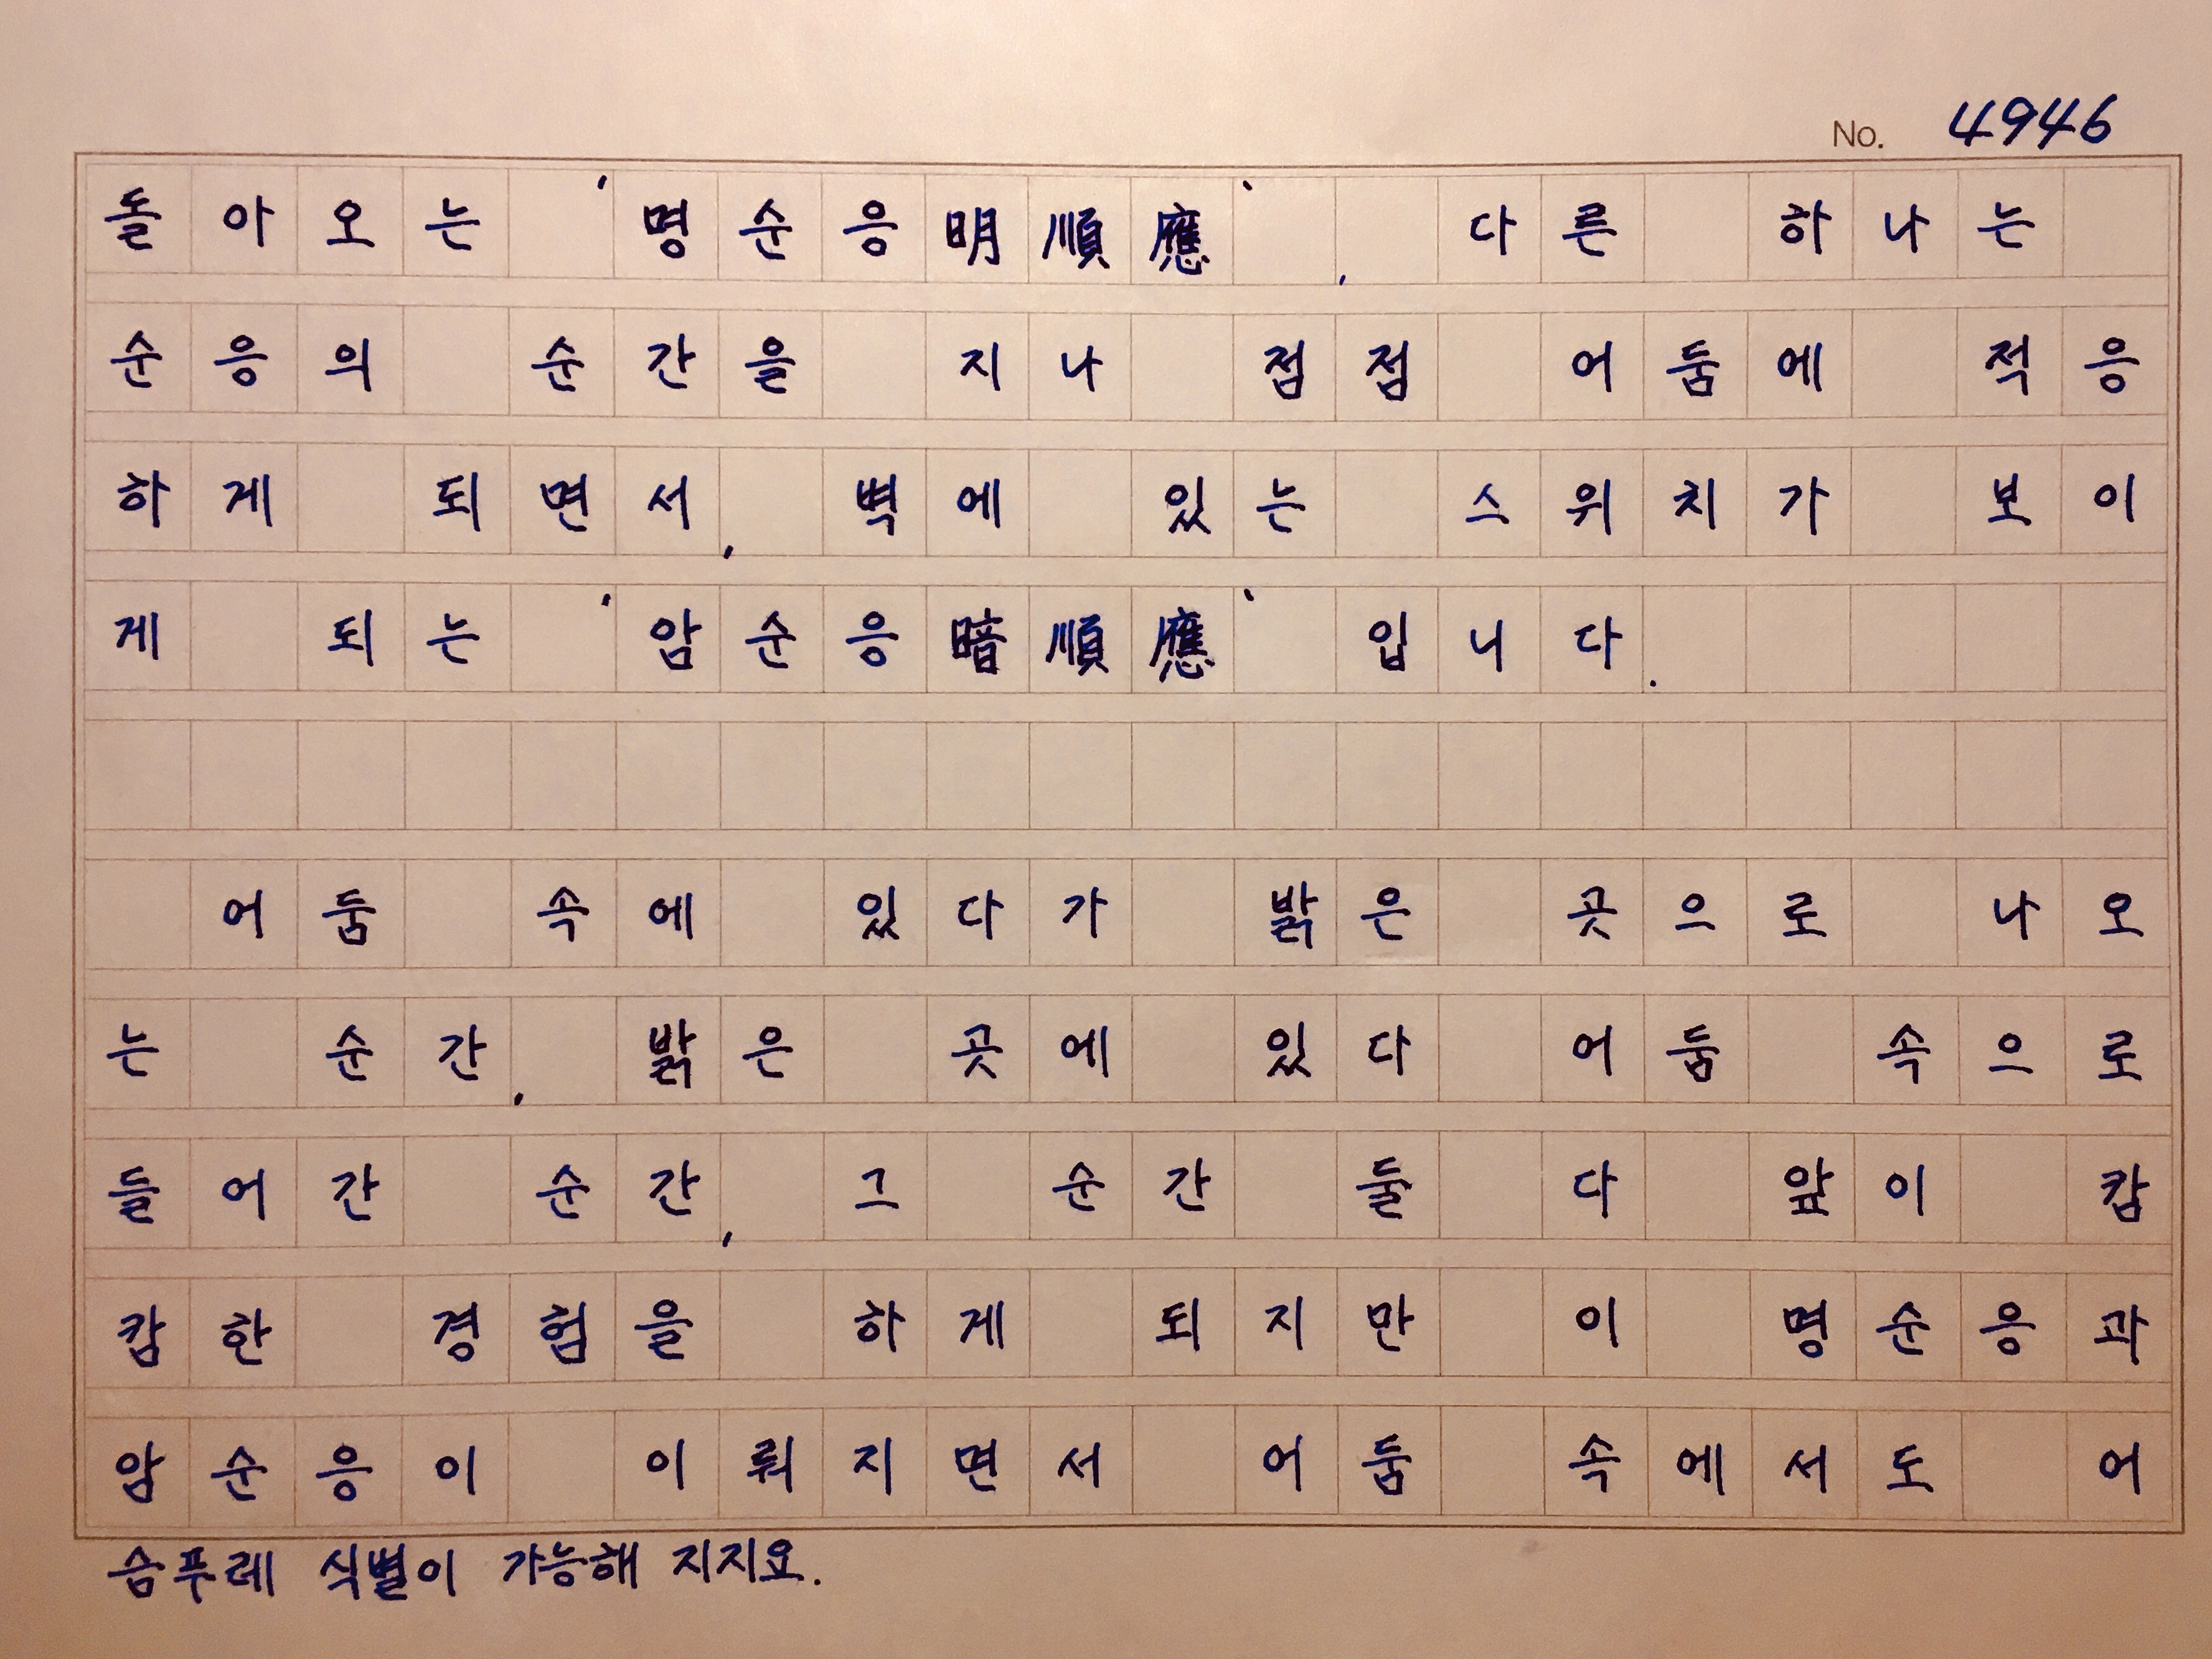 No. 4946
돌아오는 '명순응明順應', 다른 하나는
순응의 순간을 지나 점점 어둠에 적응
하게 되면서, 벽에 있는 스위치가 보이
게 되는 '암순응暗順應'입니다.
어둠 속에 있다가 밝은 곳으로 나오
는 순간, 밝은 곳에 있다 어둠 속으로
들어간 순간, 그 순간 둘 다 앞이 캄
캄한 경험을 하게 되지만 이 명순응과
암순응이 이뤄지면서 어둠 속에서도 어
슴푸레 식별이 가능해 지지요.